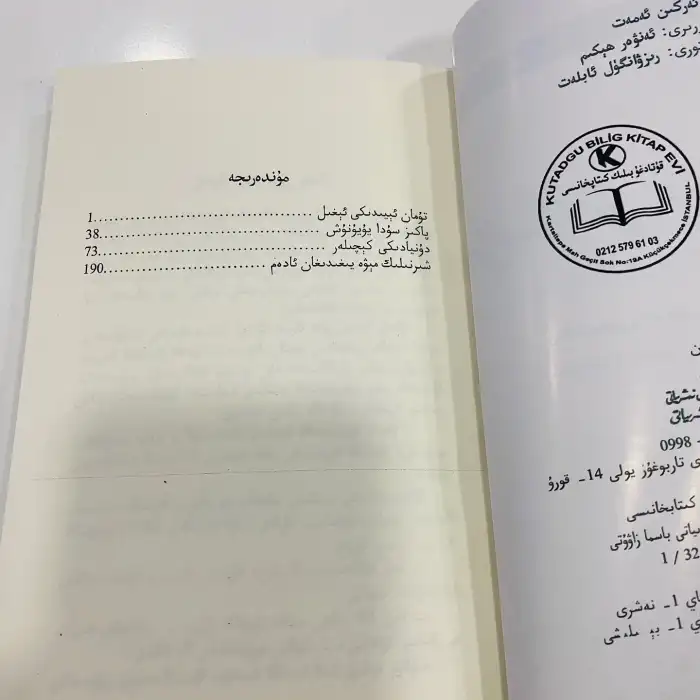 مۇندەرىجە
تۇمان ئېيىدىكى ئېغىل........................1
پاكىز سۇدا يۇيۇنۇش........................38
دۇنيادىكى كېچىلەر........................73
شىرنىلىك مېۋە يىغىدىغان ئادەم........................190
ئەركىن ئەمەت
ئەنۋەر ھېكىم
رىزۋانگۈل ئابلەت
KUTADGU BILIG KITAP EVI
K
قۇتادغۇبىلىك كىتابخانىسى
0212 579 61 03
Kartaltepe Mah Geçit Sok No:19A Küçükçekmece ISTANBUL
نەشرىياتى
0998
تاربوغۇز يولى 14ـ قورۇ
كىتابخانىسى
باسما زاۋۇتى
1 / 32
ئاي 1ـ نەشرى
1ـ بېسىلىشى